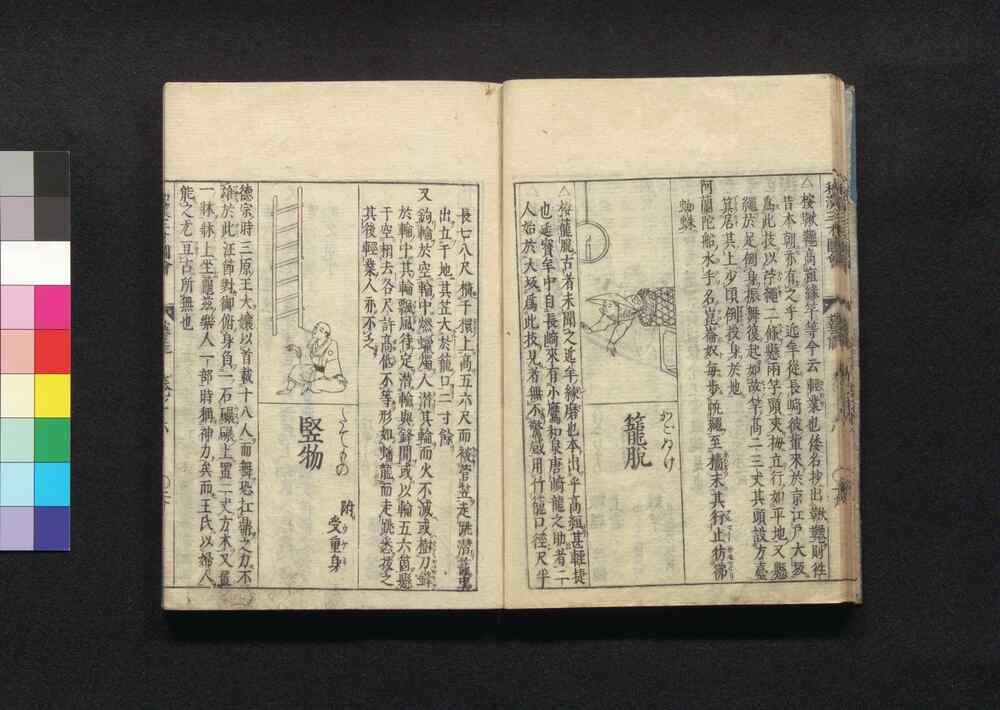 和漢三才圖會
△按鞦韆高絙緣竿等今云輕業也倭名抄出鞦韆則往
昔本朝亦有之乎近年從長崎彼輩來於京江戸大坂
爲此技以苧繩二條懸兩竿頭夾梅立行如平地又懸
繩於足倒身振舞復起如故竿高二三丈其頭設方臺
箕居其上少頃倒投身於地
阿蘭陀船水手名崑崙奴毎歩帆繩至檣末其行止彷彿
蜘蛛
かごぬけ
籠脱
△按籠脱古者未聞之近年緣磨也本出乎高絙甚輕捷
也延寶年中自長崎來有小鷹和泉唐崎龍之助者二
人始於大坂爲此技見者無不驚感用竹籠口徑尺半
長七八尺橫于榻上高五六尺而被菅笠走跳潜籠中
出立于地其笠大於籠口二寸餘
又鉤輪於空輪中燃蠟燭人潜其輪而火不滅或樹刀鋒
於輪中其輪飄風待定潜輪與鋒間或以輪五六箇懸
于空相去各尺許高低不等形如蟠龍而走跳悉拔之
其後輕業人亦不乏
たてもの
竪物
附
受重身
德宗時三原王大娘以首戴十八人而舞恐扛鼎之力不
雄於此汪節對御俯身負一石碾碾上置二丈方木又置
一牀牀上坐龜茲樂人一部時稱神力矣而王氏以婦人
能之尤亘古所無也